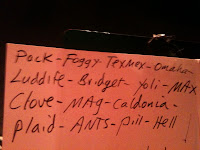 Pock-Foggy TexMex-Omaha-
Luddite-Bridget-Yoli-MAX
Clove-MAg-Caldonia-
Plaid-ANTS-pill-Hell!